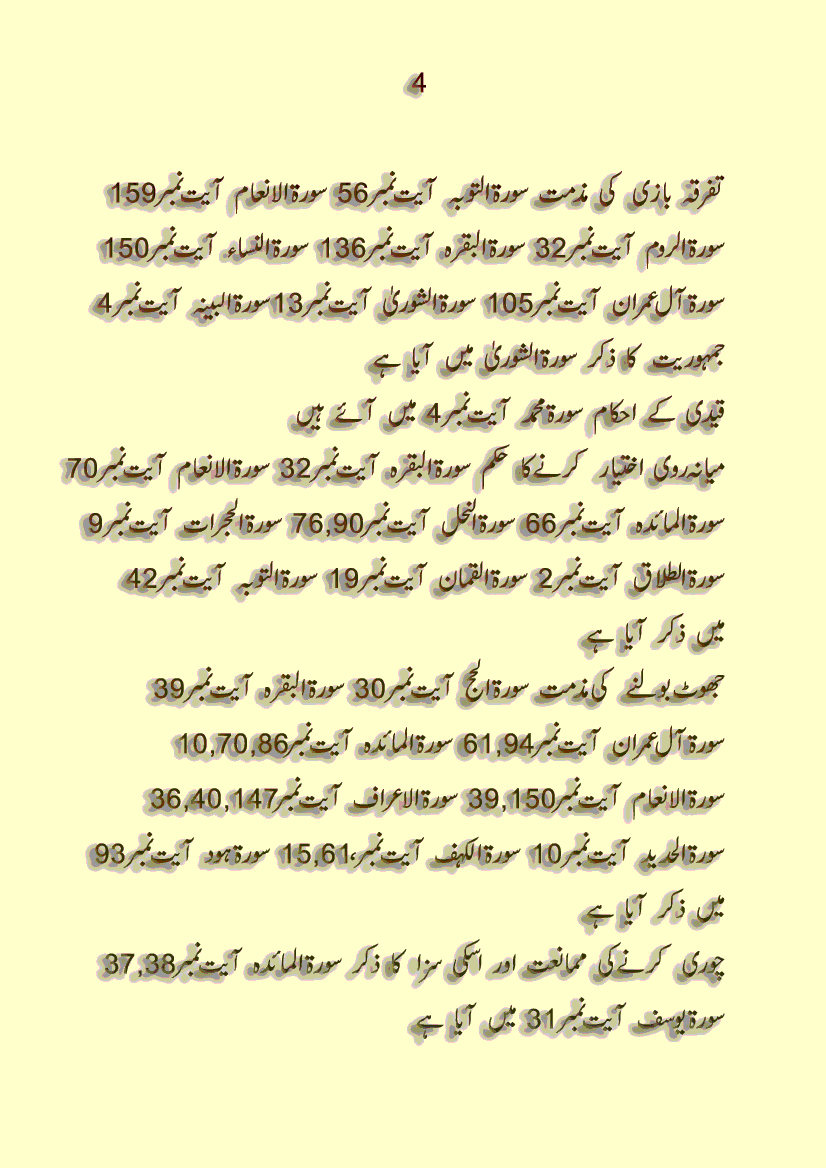 4
تفرقہ بازی کی مذمت سورۃالتوبہ آیت‌نمبر56 سورۃالانعام آیت‌نمبر159
سورۃالروم آیت‌نمبر32 سورۃالبقرہ آیت‌نمبر136 سورۃالنساء آیت‌نمبر150
سورۃآل‌عمران آیت‌نمبر105 سورۃالشوریٰ آیت‌نمبر13سورۃالبینہ آیت‌نمبر4
جمہوریت کا ذکر سورۃالشوریٰ میں آیا ہے
قیدی کے احکام سورۃمحمد آیت‌نمبر4 میں آئے ہیں
میانہ‌روی اختیار کرنے‌کا حکم سورۃالبقرہ آیت‌نمبر32 سورۃالانعام آیت‌نمبر70
سورۃالمائدہ آیت‌نمبر66 سورۃالنحل آیت‌نمبر76,90 سورۃالحجرات آیت‌نمبر9
سورۃالطلاق آیت‌نمبر2 سورۃالقمان آیت‌نمبر19 سورۃالتوبہ آیت‌نمبر42
میں ذکر آیا ہے
جھوٹ‌بولنے کی‌مذمت سورۃالحج آیت‌نمبر30 سورۃالبقرہ آیت‌نمبر39
سورۃآل‌عمران آیت‌نمبر61,94 سورۃالمائدہ آیت‌نمبر10,70,86
سورۃالانعام آیت‌نمبر39,150 سورۃالاعراف آیت‌نمبر36,40,147
سورۃالحدید آیت‌نمبر10 سورۃالکہف آیت‌نمبر،15,61 سورۃہود آیت‌نمبر93
میں ذکر آیا ہے
چوری کرنے‌کی ممانعت اور اسکی سزا کا ذکر سورۃالمائدہ آیت‌نمبر37,38
سورۃیوسف آیت‌نمبر31 میں آیا ہے